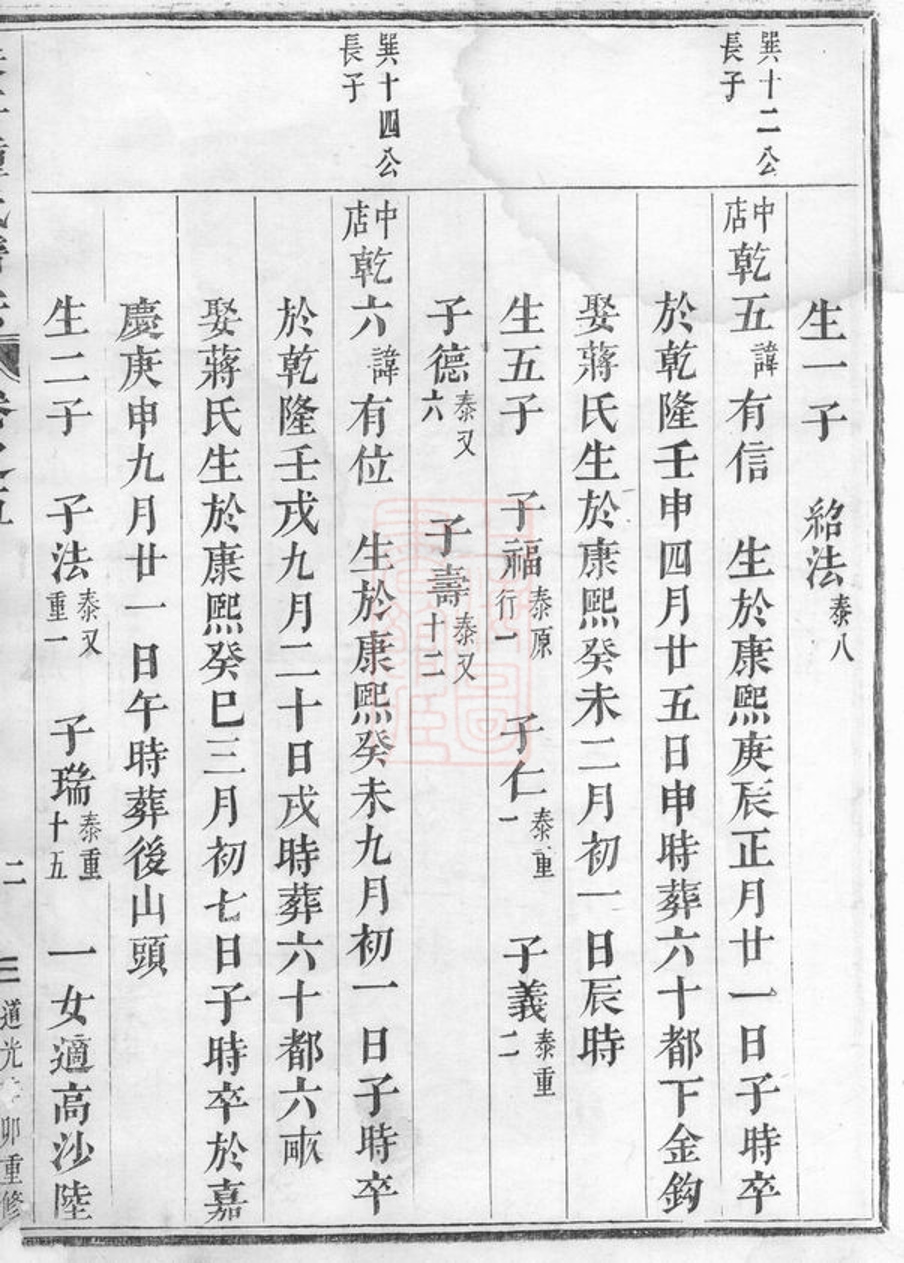 生一子　紹法泰八
巽十二公長子
中店乾五諱有信　生於康熙庚辰正月廿一日子時卒
於乾隆壬申四月廿五日申時葬六十都下金鈎
娶蔣氏生於康熙癸未二月初一日辰時
生五子　子福泰原行一　子仁泰重一　子義泰重二
子德泰又六　子壽泰又十二
巽十四公長子
中店乾六諱有位　生於康熙癸未九月初一日子時卒
於乾隆壬戌九月二十日戌時葬六十都六畝
娶蔣氏生於康熙癸巳三月初七日子時卒於嘉
慶庚申九月廿一日午時葬後山頭
生二子　子法泰又重一　子瑞泰重十五　一女適高沙陸
卷之五
二
道光　卯重修